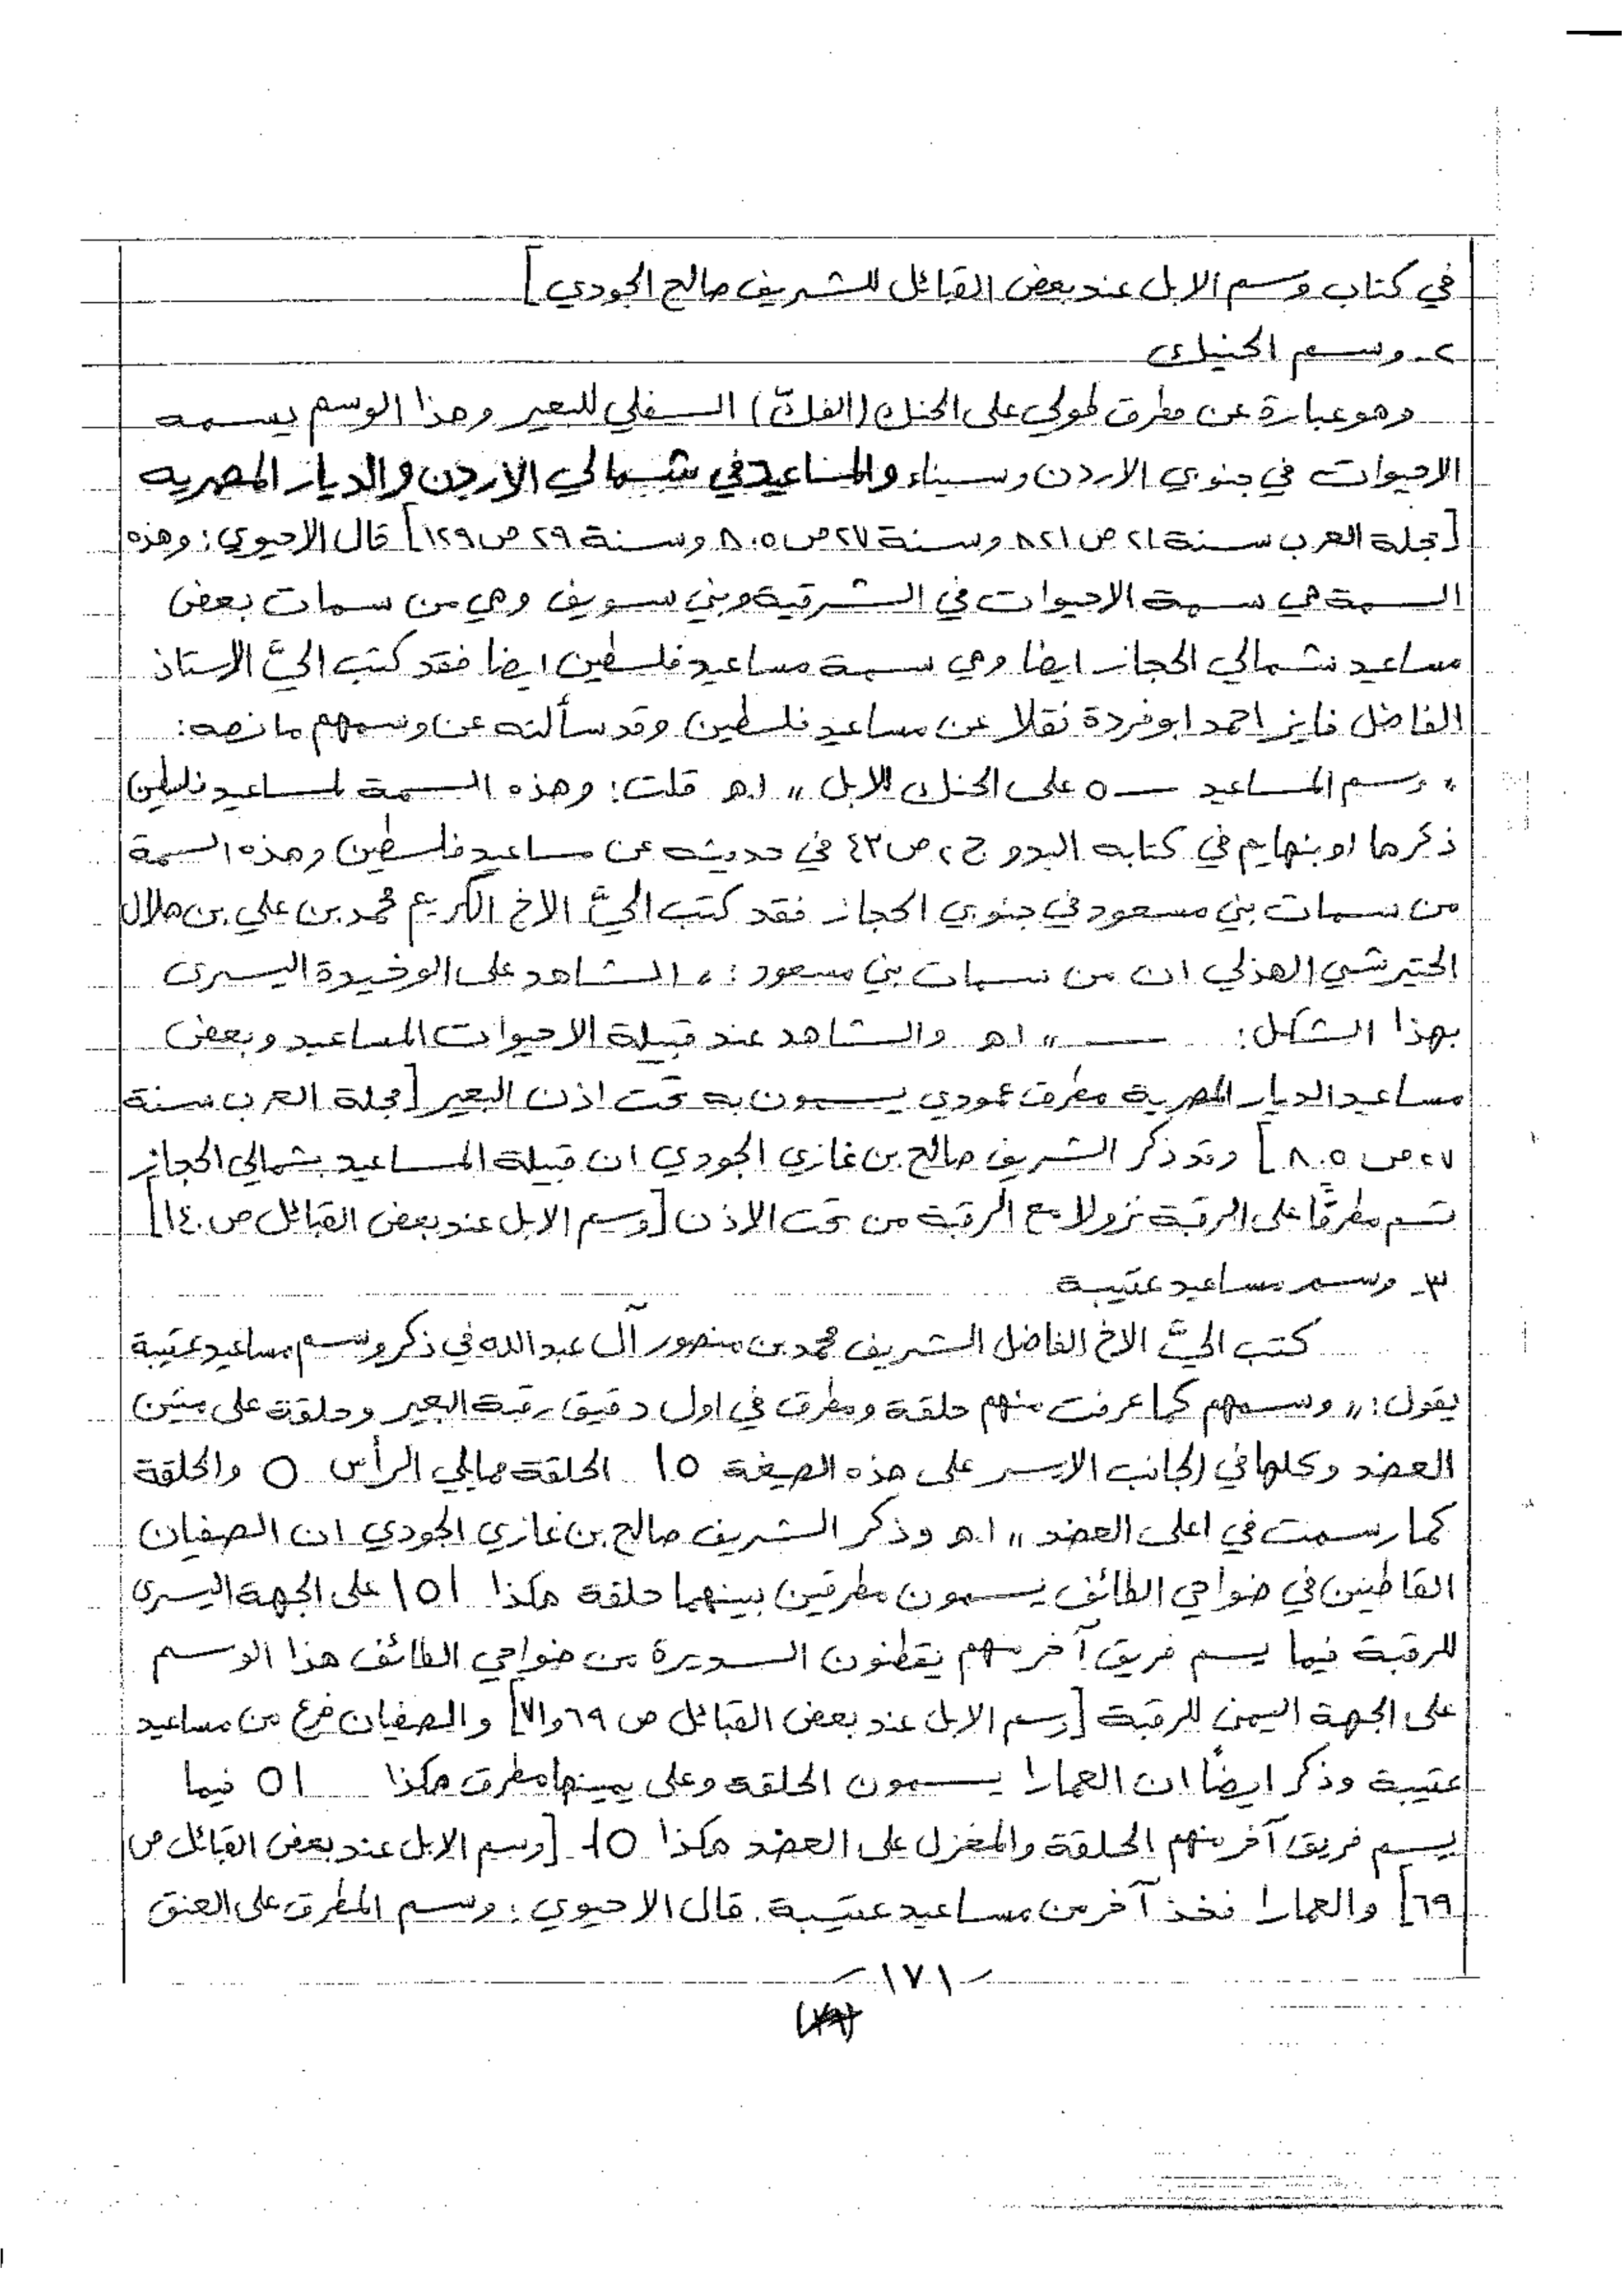 في كتاب وسم الابل عند بعض القبائل للشريف صالح الجودي]
٢ـ وسم الحنيك
وهو عبارة عن مطرق طولي على الحنك (الفكّ) السفلي للبعير وهذا الوسم يسمه
الاحيوات في جنوبي الاردن وسيناء والمساعيد في شمالي الاردن والديار المصريه
[مجلة العرب سنة ٢١ ص ٨٢١ وسنة ٢٧ ص ٨٠٥ وسنة ٢٩ ص ١٢٩] قال الاحيوي: وهذه
السمة هي سمة الاحيوات في الشرقية وبني سويف وهي من سمات بعض
مساعيد شمالي الحجاز ايضا وهي سمة مساعيد فلسطين ايضا فقد كتب اليَّ الاستاذ
الفاضل فايز احمد ابو فردة نقلا عن مساعيد فلسطين وقد سألته عن وسمهم ما نصه:
" وسم المساعيد ــــ ٥ على الحنك للابل " اهـ قلت: وهذه السمة لمساعيد فلسطين
ذكرها اوبنهايم في كتابه البدو ج ٢ ص ٤٣ في حديثه عن مساعيد فلسطين وهذه السمة
من سمات بني مسعود في جنوبي الحجاز فقد كتب اليَّ الاخ الكريم محمد بن علي بن هلال
الختيرشي الهذلي ان من سمات بني مسعود: " الشاهد على الوخيدة اليسرى
بهذا الشكل: ــــــ " اهـ والشاهد عند قبيلة الاحيوات المساعيد وبعض
مساعيد الديار المصرية مطرق عمودي يسمون به تحت اذن البعير [مجلة العرب سنة
٢٧ ص ٨٠٥] وقد ذكر الشريف صالح بن غازي الجودي ان قبيلة المساعيد بشمالي الحجاز
تسم مطرقًا على الرقبة نزولا مع الرقبة من تحت الاذن [وسم الابل عند بعض القبائل ص ١٤٠]
٣ـ وسم مساعيد عتيبة
كتب اليَّ الاخ الفاضل الشريف محمد بن منصور آل عبد الله في ذكر وسم مساعيد عتيبة
يقول: " وسمهم كما عرفت منهم حلقة ومطرق في اول دقيق رقبة البعير وحلقة على متين
العضد وكلها في الجانب الايسر على هذه الصيغة ا٥ الحلقة ممايلي الرأس O والحلقة
كما رسمت في اعلى العضد " اهـ وذكر الشريف صالح بن غازي الجودي ان الصفيان
القاطنين في ضواحي الطائف يسمون مطرقين بينهما حلقة هكذا ا٥ا على الجهة اليسرى
للرقبة فيما يسم فريق آخر منهم يقطنون السديرة من ضواحي الطائف هذا الوسم
على الجهة اليمنى للرقبة [وسم الابل عند بعض القبائل ص ٦٩ و٧١] والصفيان فرع من مساعيد
عتيبة وذكر ايضًا ان العمارا يسمون الحلقة وعلى يمينها مطرق هكذا ٥ا فيما
يسم فريق آخر منهم الحلقة والمغزل على العضد هكذا ٥ [وسم الابل عند بعض القبائل ص
٦٩] والعمارا فخذ آخر من مساعيد عتيبة. قال الاحيوي: وسم المطرق على العنق
ـ ١٧١ ـ